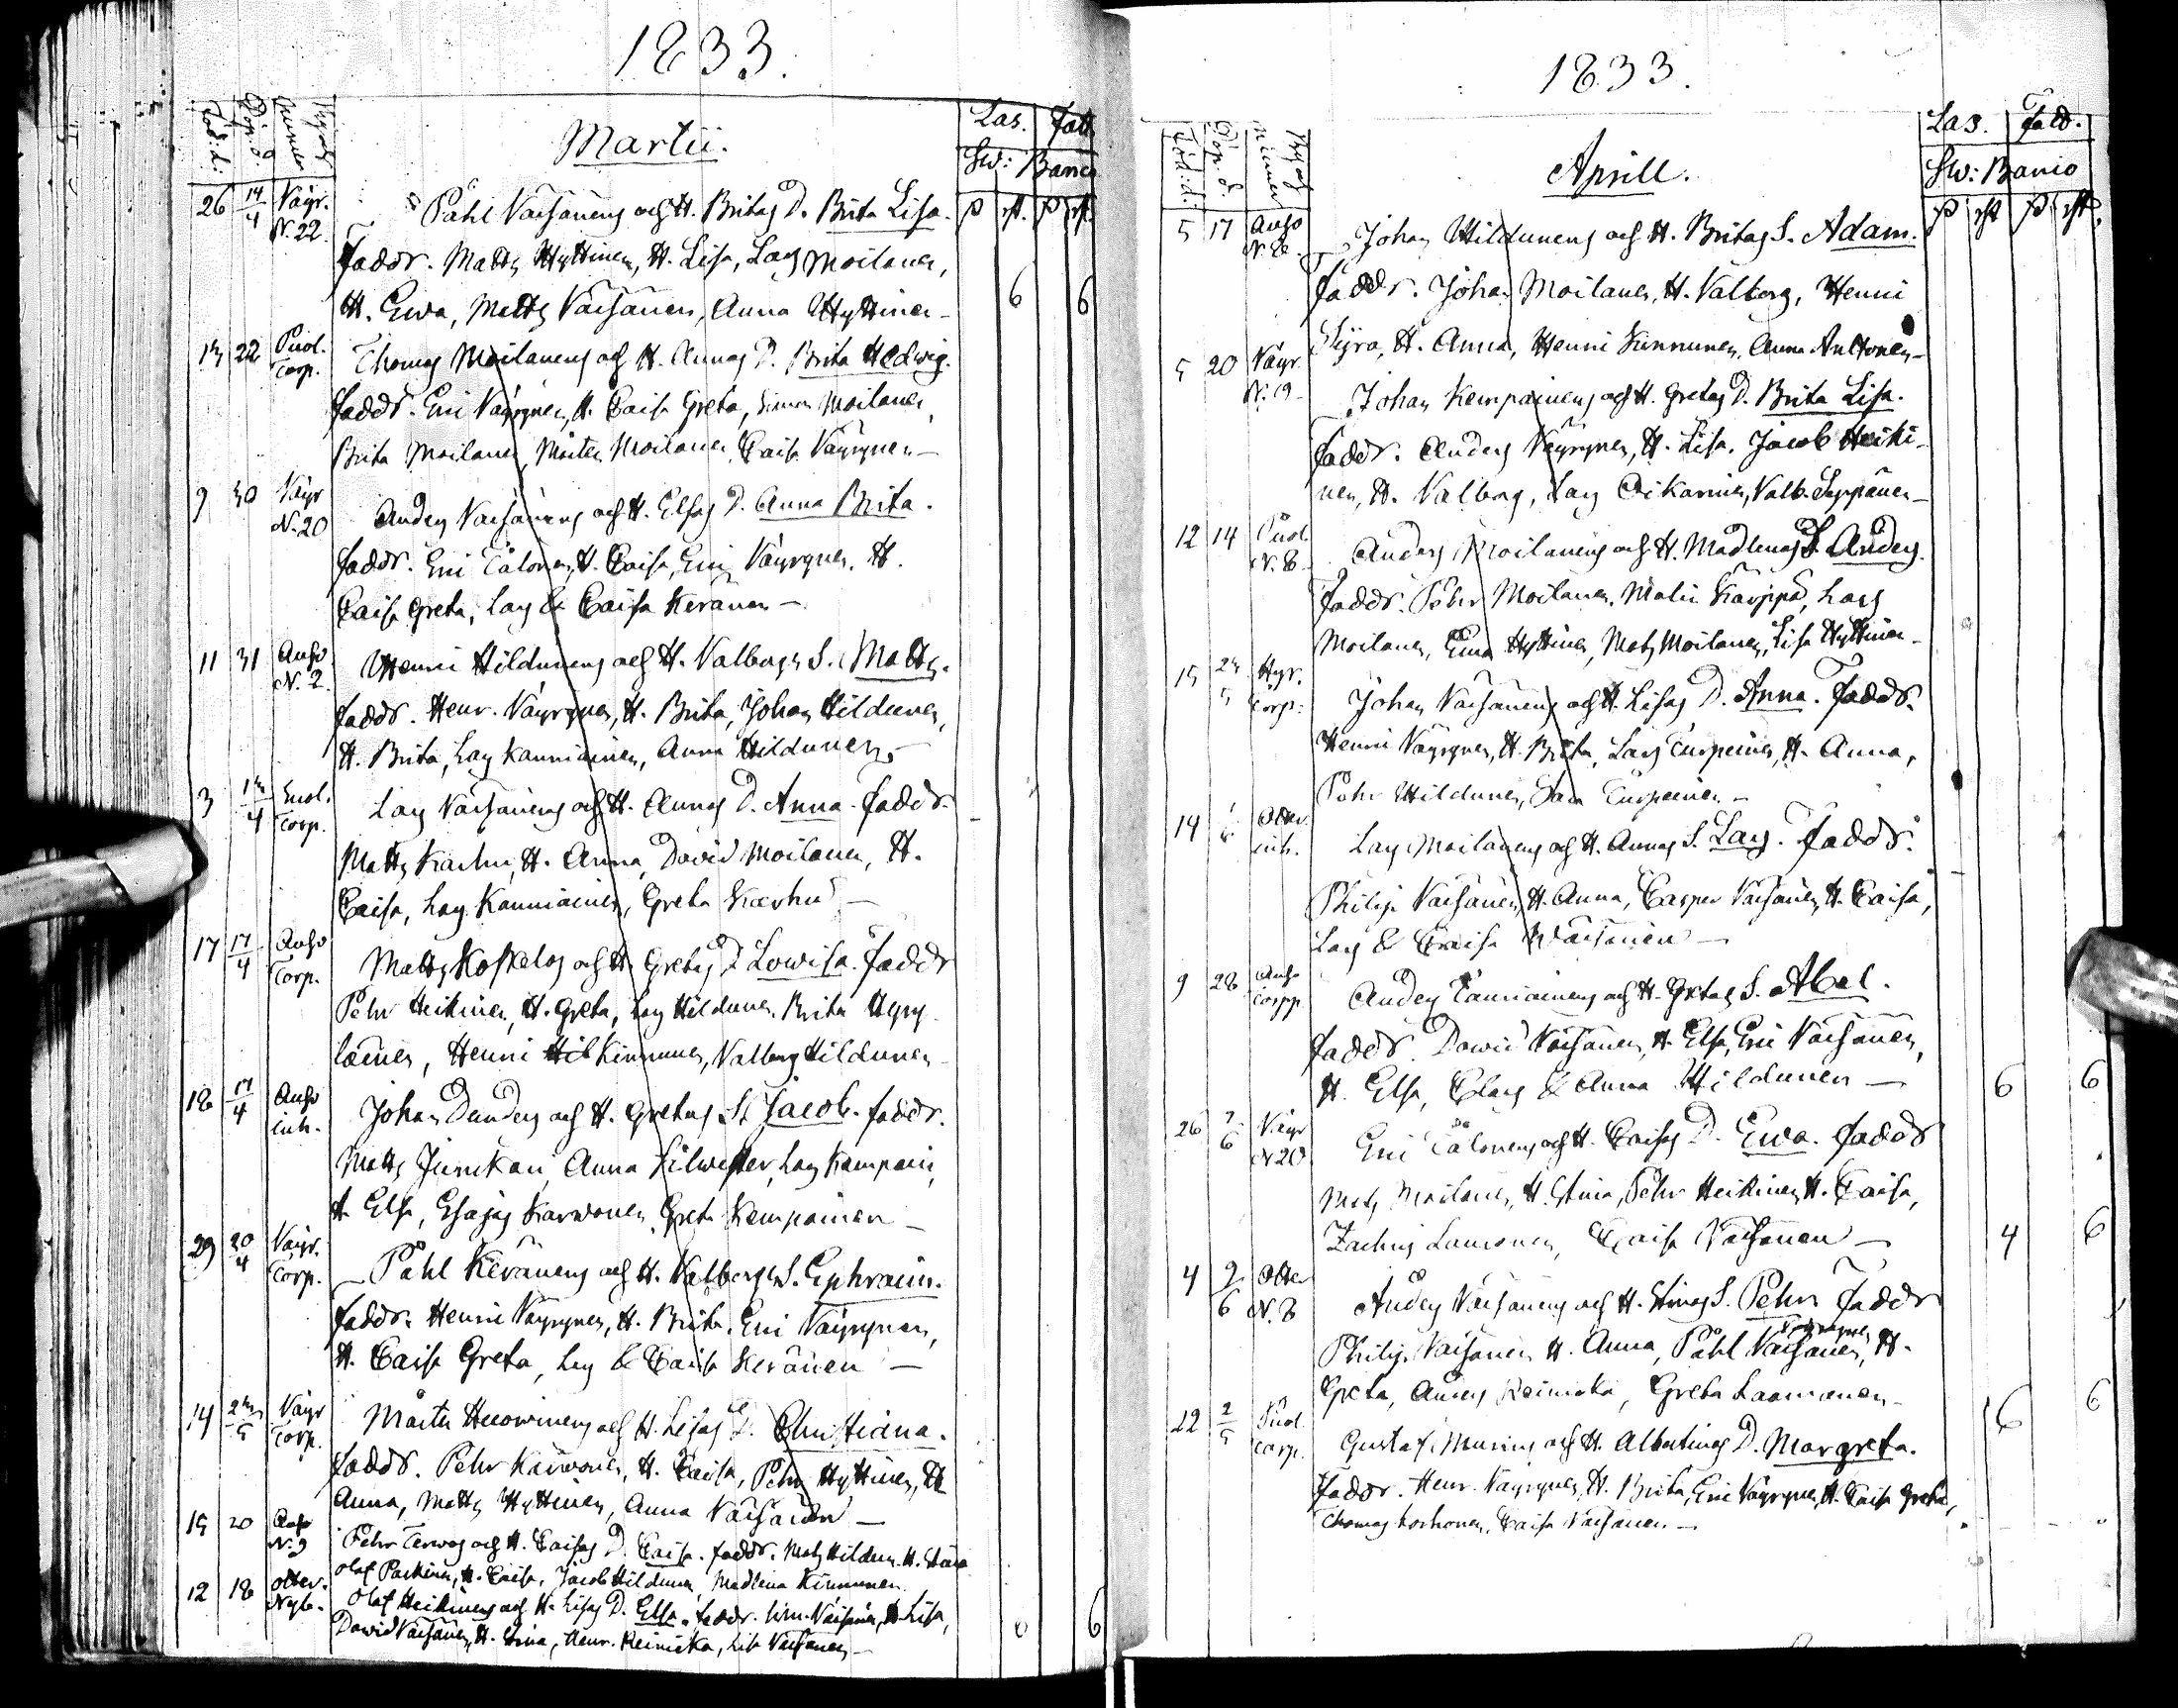 1833.
Född: d. Döp. d. Numer
Martii.
Las. Fatt
Sw: Banco
26 14/4 Väyr. N. 22. Påhl Väisänens och H. Britas D. Brita Lisa.
Faddr. Matts Hyttinen, H. Lisa, Lars Moilanen,
H. Ewa, Matts Väisänen, Anna Hyttinen – 6 6
22 Puol. Torp. Thomas Moilanens och H. Annas D. Brita Hedwig.
Faddr. Eric Väyrynen, H. Caisa Greta, Simon Moilanen,
Brita Moilanen, Mårten Moilanen, Caisa Väyrynen –
9 30 Väyr N. 20 Anders Väisänens och H. Elsas D. Anna Brita.
Faddr. Eric Tålonen, H. Caisa, Eric Väyrynen, H.
Caisa Greta, Lars & Caisa Keränen –
11 31 N. 2. Henric Hildunens och H. Valborgs S. Matts.
Faddr. Henr. Väyrynen, H. Brita, Johan Hildunen,
H. Brita, Lars Kanniainen, Anna Hildunen –
3 Torp. Lars Väisänens och H. Annas D. Anna. Faddr.
Matts Karhu, H. Anna, David Moilanen, H.
Caisa, Lars Kanniainen, Greta Karhu –
17 17/4 Torp. Matts Koskelos och H. Gretas D. Lowisa. Faddr
Pehr Heikinen, H. Greta, Lars Hildunen, Brita Hyry
läinen, Henric Hil Kinnunen, Valborg Hildunen –
18 17/4 inh. Johan Danders och H. Gretas S. Jacob. Faddr.
Matts Junikan, Anna Silwester, Lars Kempain,
H. Elsa, Esajas Karwonen, Greta Kempainen –
29 20/4 Väyr. Torp. Påhl Keränens och H. Valborgs S. Ephraim.
Faddr. Henric Väyrynen, H. Brita, Eric Väyrynen,
H. Caisa Greta, Lars & Caisa Keränen –
14 Väyr Torp. Mårten Huowinens och H. Lisas D. Christiana.
Faddr. Pehr Karwonen, H. Caisa, Pehr Hyttinen, H.
Anna, Matts Hyttinen, Anna Väisänen –
15 20 N. 9 Pehr Terwos och H. Caisas D. Caisa. Faddr. Mats Hildun. H. Stina
Olof Parkinen, H. Caisa, Jacob Hildunen, Madlena Kinnunen.
12 18 Nyb. Olof Heikinens och H. Lisas D. Elsa. Faddr. Sim. Väisänen, H. Lisa,
David Väisänen, H. Stina, Henr. Reinicka, Lisa Väisänen – 6
1833.
Född: d. Döp. d. Numer
Aprill.
Las. Fadd.
Sw: Banco
5 17 Johan Hildunens och H. Britas S. Adam.
Faddr. Johan Moilanen, H. Valborg, Henric
H. Anna, Henric Kinnunen, Anna Anttonen –
5 20 Väyr. N. 9 Johan Kempainens och H. Gretas D. Brita Lisa.
Faddr. Anders Väyrynen, H. Lisa, Jacob Heiki-
nen, H. Valborg, Lars Oikarinen, Valb. Seppänen –
12 14 Puol. N. 8 Anders Moilanens och H. Madlenas S. Anders.
Faddr. Pehr Moilanen, Malin Karppa, Lars
Moilanen, Hyttinen, Mats Moilanen, Lisa Hyttinen –
15 Hyr. Torp. Johan Väisänens och H. Lisas D. Anna. Faddr.
Henric Väyrynen, H. Brita, Lars Turpeinen, H. Anna,
Pehr Hildunen, Turpeinen –
14 inh. Lars Moilanens och H. Annas S. Lars. Faddr.
Philip Väisänen, H. Anna, Casper Väisänen, H. Caisa,
Lars & Caisa Väisänen –
9 28 Torpp Anders och H. Gretas S. Abel.
Faddr. David Väisänen, H. Elsa, Eric Väisänen,
H. Elsa, Clas & Anna Hildunen – 6 6
26 7/6 Väyr N 20 Eric Tålonens och H. Caisas D. Ewa. Faddr
Mats Moilanen, H. Stina, Pehr Heikinen, H. Caisa,
Zachris Lauronen, Caisa Väisänen – 4 6
4 9/6 N. 8 Anders Väisänens och H. Stinas S. Pehr. Faddr
Philip Väisänen, H. Anna, Påhl Väisänen, H.
Greta, Anders Reinicka, Greta Laamanen – 6 6
22 2/5 Puol. Torp. Gustaf Munins och H. Albertinas D. Margreta.
Faddr. Henr. Väyrynen, H. Brita, Eric Väyrynen, H. Caisa Greta,
Thomas Korhonen, Caisa Väisänen –